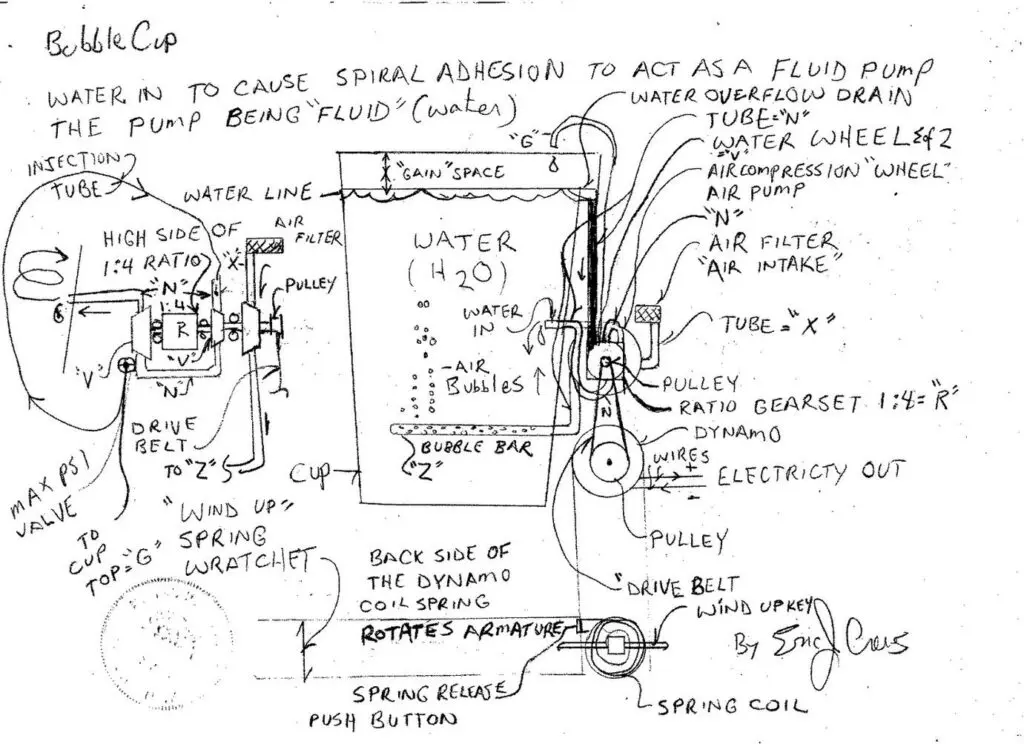 Bubble Cup
WATER IN TO CAUSE SPIRAL ADHESION TO ACT AS A FLUID PUMP
THE PUMP BEING "FLUID" (water)
WATER OVERFLOW DRAIN
"G"
TUBE="N"
WATER WHEEL 1 of 2
="V"
AIR COMPRESSION "WHEEL"
AIR PUMP
"N"
AIR FILTER
"AIR INTAKE"
TUBE="X"
INJECTION
TUBE
WATER LINE
"GAIN" SPACE
HIGH SIDE OF
1:4 RATIO
"X"
AIR
FILTER
PULLEY
"N"
1:4
R
"V"
"V"
"N"
WATER
(H2O)
WATER
IN
-AIR
BUBBLES
BUBBLE BAR
"Z"
CUP
PULLEY
RATIO GEARSET 1:4="R"
N
DYNAMO
WIRES
+
-
ELECTRICTY OUT
PULLEY
"DRIVE BELT
DRIVE
BELT
TO "Z"
MAX PSI
VALVE
TO
CUP
TOP="G"
"WIND UP"
SPRING
WRATCHET
BACK SIDE OF
THE DYNAMO
COIL SPRING
ROTATES ARMATURE
WIND UP KEY
SPRING RELEASE
PUSH BUTTON
SPRING COIL
By Eric J